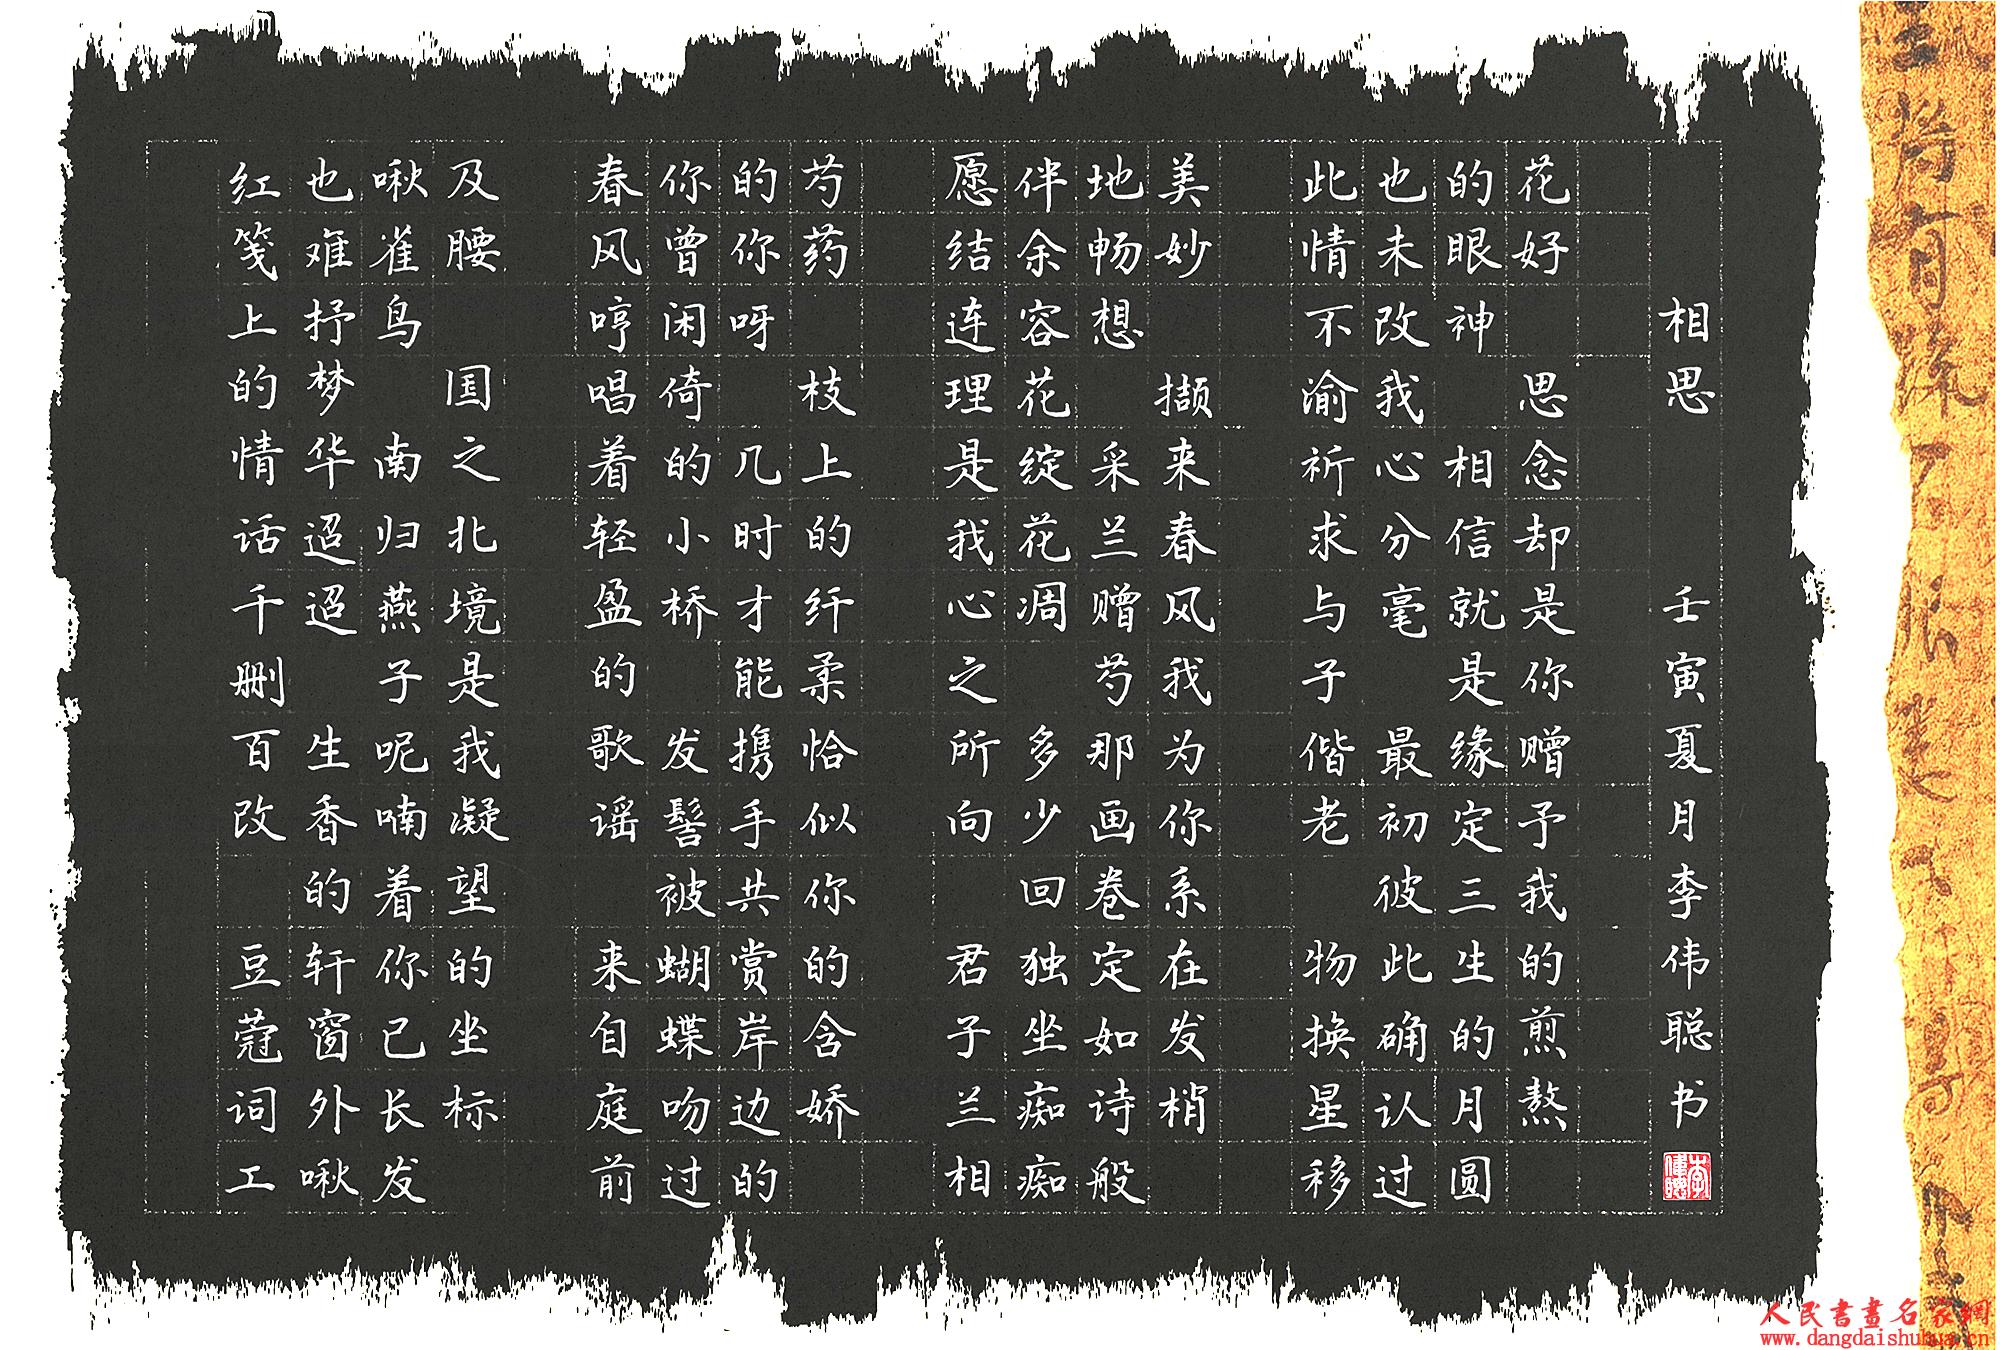 红笺上的情话千删百改 豆蔻词工
也难抒梦华迢迢 生香的轩窗外啾
啾雀鸟 南归燕子呢喃着你已长发
及腰 国之北境是我凝望的坐标
春风哼唱着轻盈的歌谣 来自庭前
你曾闲倚的小桥 发髻被蝴蝶吻过
的你呀 几时才能携手共赏岸边的
芍药 枝上的纤柔恰似你的含娇
愿结连理是我心之所向 君子兰相
伴余容花绽花凋 多少回独坐痴痴
地畅想 采兰赠芍那画卷定如诗般
美妙 撷来春风我为你系在发梢
此情不渝祈求与子偕老 物换星移
也未改我心分毫 最初彼此确认过
的眼神 相信就是缘定三生的月圆
花好 思念却是你赠予我的煎熬
相思 壬寅夏月李伟聪书
人民書畫名家網
www.dangdaishuhua.cn